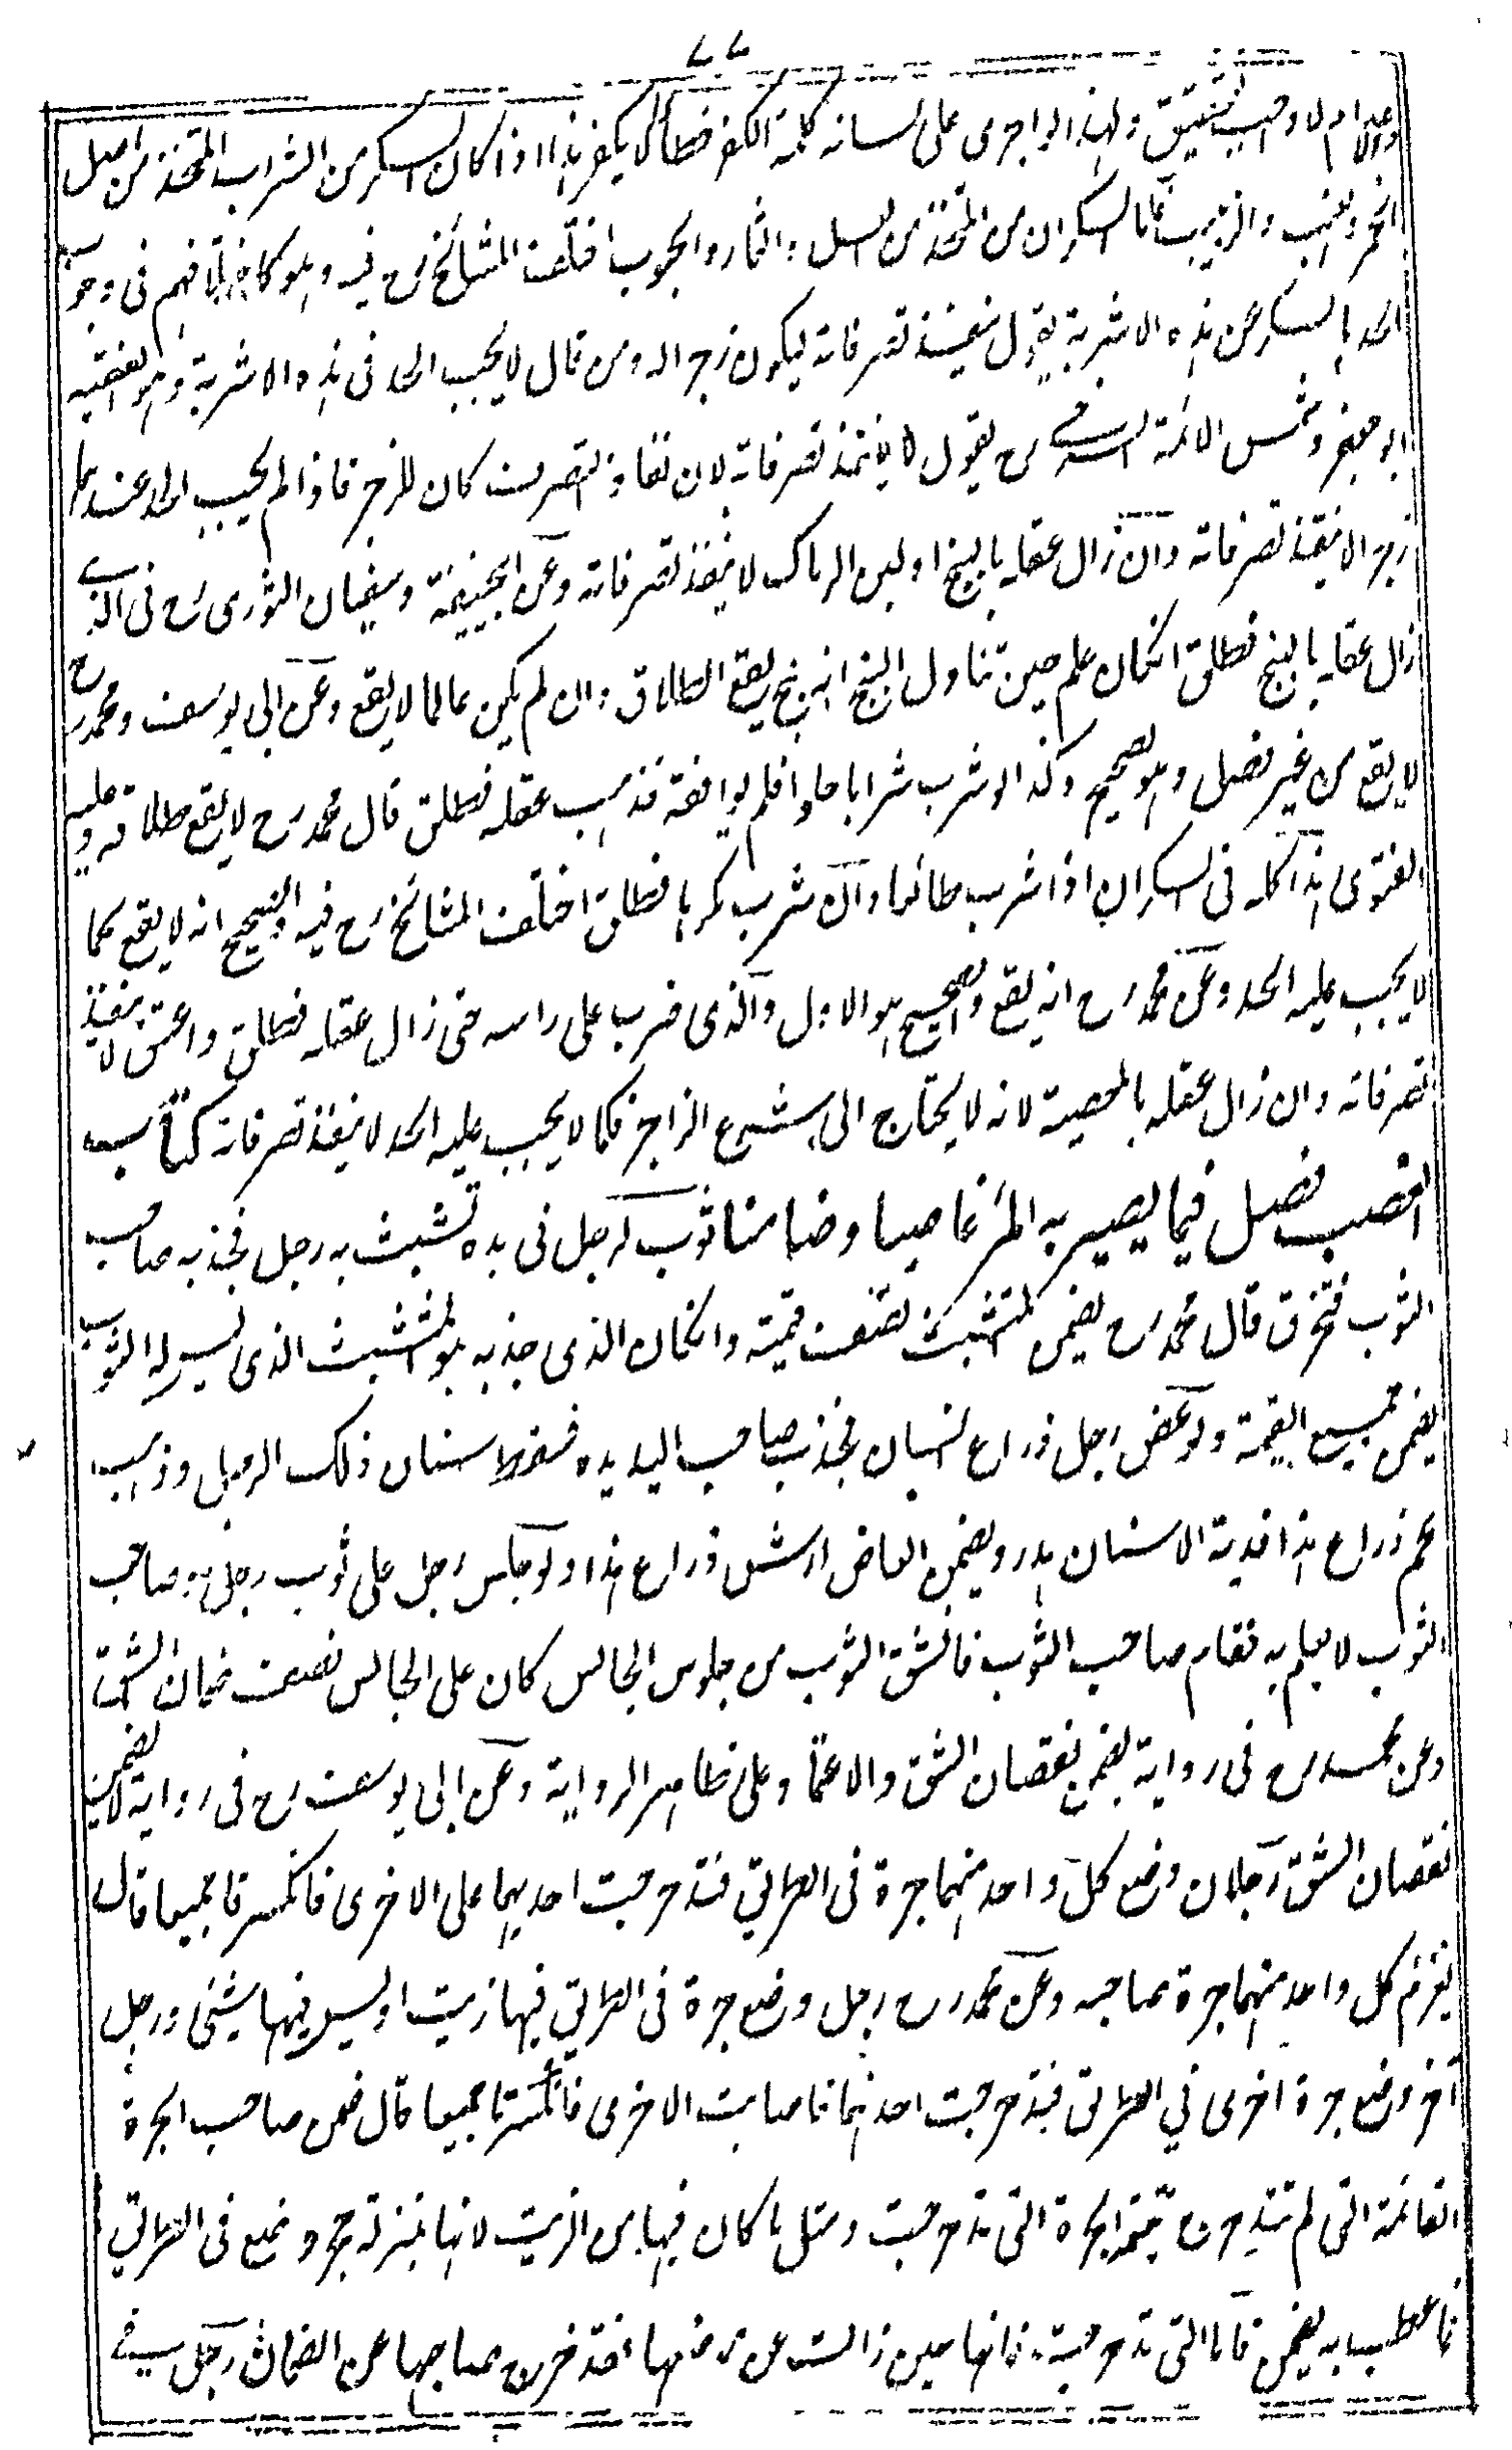 ٧٧
والاعدام لا وجب تحقيق ولهذا لو اجرى على لسانه كلمة الكفر خطأ لا يكفر هذا اذا كان السكر من الشراب المتخذ من اصل
الخمر والعنب والزبيب فاما السكران من المتخذ من العسل والثمار والحبوب اختلف المشائخ رح فيه وهو كاختلافهم فى وجوب
الحد بالسكر من هذه الاشربة يقول ينفذ تصرفاته ليكون زجرا له ومن قال لا يجب الحد فى هذه الاشربة وهو الفقيه
ابو جعفر وشمس الائمة السرخسى رح يقول لا ينفذ تصرفاته لان نفاذ التصرف كان للزجر فاذا لم يجب الحد عندهما
زجرا لا ينفذ تصرفاته وان زال عقله بالبنج او لبن الرماك لا ينفذ تصرفاته وعن ابيحنيفة وسفيان الثورى رح فى الذى
زال عقله بالبنج فطلق انكان علم حين تناول البنج انه بنج يقع الطلاق وان لم يكن عالما لا يقع وعن ابى يوسف ومحمد رح
لا يقع من غير فصل وهو الصحيح وكذا لو شرب شرابا حلوا فلم يوافقه فذهب عقله فطلق قال محمد رح لا يقع طلاقه وعليه
الفتوى هذا كله فى السكران اذا شرب طائعا وان شرب مكرها فطلق اختلف المشائخ رح فيه والصحيح انه لا يقع كما
لا يجب عليه الحد وعن محمد رح انه يقع والصحيح هو الاول والذى ضرب على راسه حتى زال عقله فطلق واعتق لا ينفذ
تصرفاته وان زال عقله بالمعصية لانه لا يحتاج الى شرع الزاجر فكما لا يجب عليه الحد لا ينفذ تصرفاته كتاب
الغصب فصل فيما يصير به المرء غاصبا وضامنا ثوب لرجل فى يده تشبث به رجل فجذبه صاحب
الثوب فتخرق قال محمد رح يضمن المتشبث نصف قيمته وانكان الذى جذبه هو المتشبث الذى ليس له الثوب
يضمن جميع القيمة ولو عض رجل ذراع انسان فجذب صاحب اليد يده فسقط اسنان ذلك الرجل وذهب
لحم ذراع هذا فدية الاسنان هدر ويضمن العاض ارش ذراع هذا ولو جلس رجل على ثوب رجل وصاحب
الثوب لا يعلم به فقام صاحب الثوب فانشق الثوب من جلوس الجالس كان على الجالس نصف ضمان الشق
وعن محمد رح فى رواية يضمن نقصان الشق والاعتماد على ظاهر الرواية وعن ابى يوسف رح فى رواية لا يضمن
نقصان الشق رجلان وضع كل واحد منهما جرة فى الطريق فتدحرجت احديهما على الاخرى فانكسرتا جميعا قال
يغرم كل واحد منهما جرة صاحبه وعن محمد رح رجل وضع جرة فى الطريق فيها زيت او ليس فيها شئ ورجل
آخر وضع جرة اخرى فى الطريق فتدحرجت احدهما فاصابت الاخرى فانكسرتا جميعا قال ضمن صاحب الجرة
القائمة التى لم تتدحرج قيمة الجرة التى تدحرجت ومثل ما كان فيها من الزيت لانها بمنزلة حجر وضع فى الطريق
فما عطب به يضمن فاما التى تدحرجت فانها حين زالت عن موضعها فقد خرج صاحبها عن الضمان رجل سقى